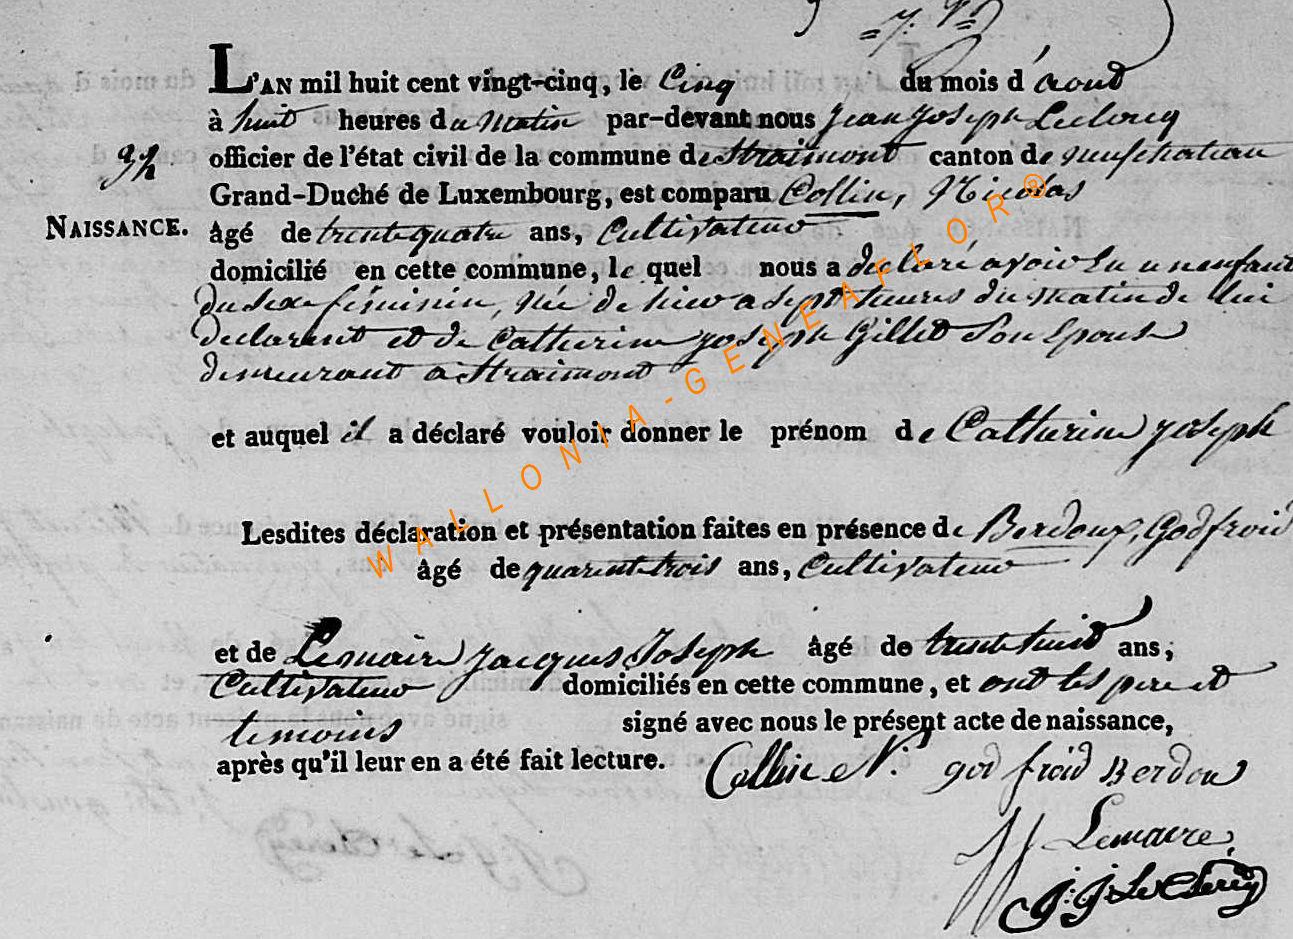 L'AN mil huit cent vingt-cinq, le Cinq du mois d'aout
à huit heures du Matin par-devant nous Jean Joseph Leclercq
officier de l'état civil de la commune de Straimont canton de neufchateau
Grand-Duché de Luxembourg, est comparu Collin, Nicolas
NAISSANCE. âgé de trente quatre ans, Cultivateur
domicilié en cette commune, le quel nous a declaré avoir Eu un enfant
du Sexe féminin, née de hier a sept heures du matin de lui
declarant et de Catherine joseph Gillet Son Epouse
demeurant a Straimont
et auquel il a déclaré vouloir donner le prénom de Catherine joseph
Lesdites déclaration et présentation faites en présence de Berdoux, Godfroid
âgé de quarente trois ans, Cultivateur
et de Lemaire jacques Joseph âgé de trente huit ans,
Cultivateur domiciliés en cette commune, et ont les pere et
temoins signé avec nous le présent acte de naissance,
après qu'il leur en a été fait lecture. Collin N. god froid Berdou
JJ Lemaire
J. J. Le Clercq
WALLONIA-GENEAFLOR®